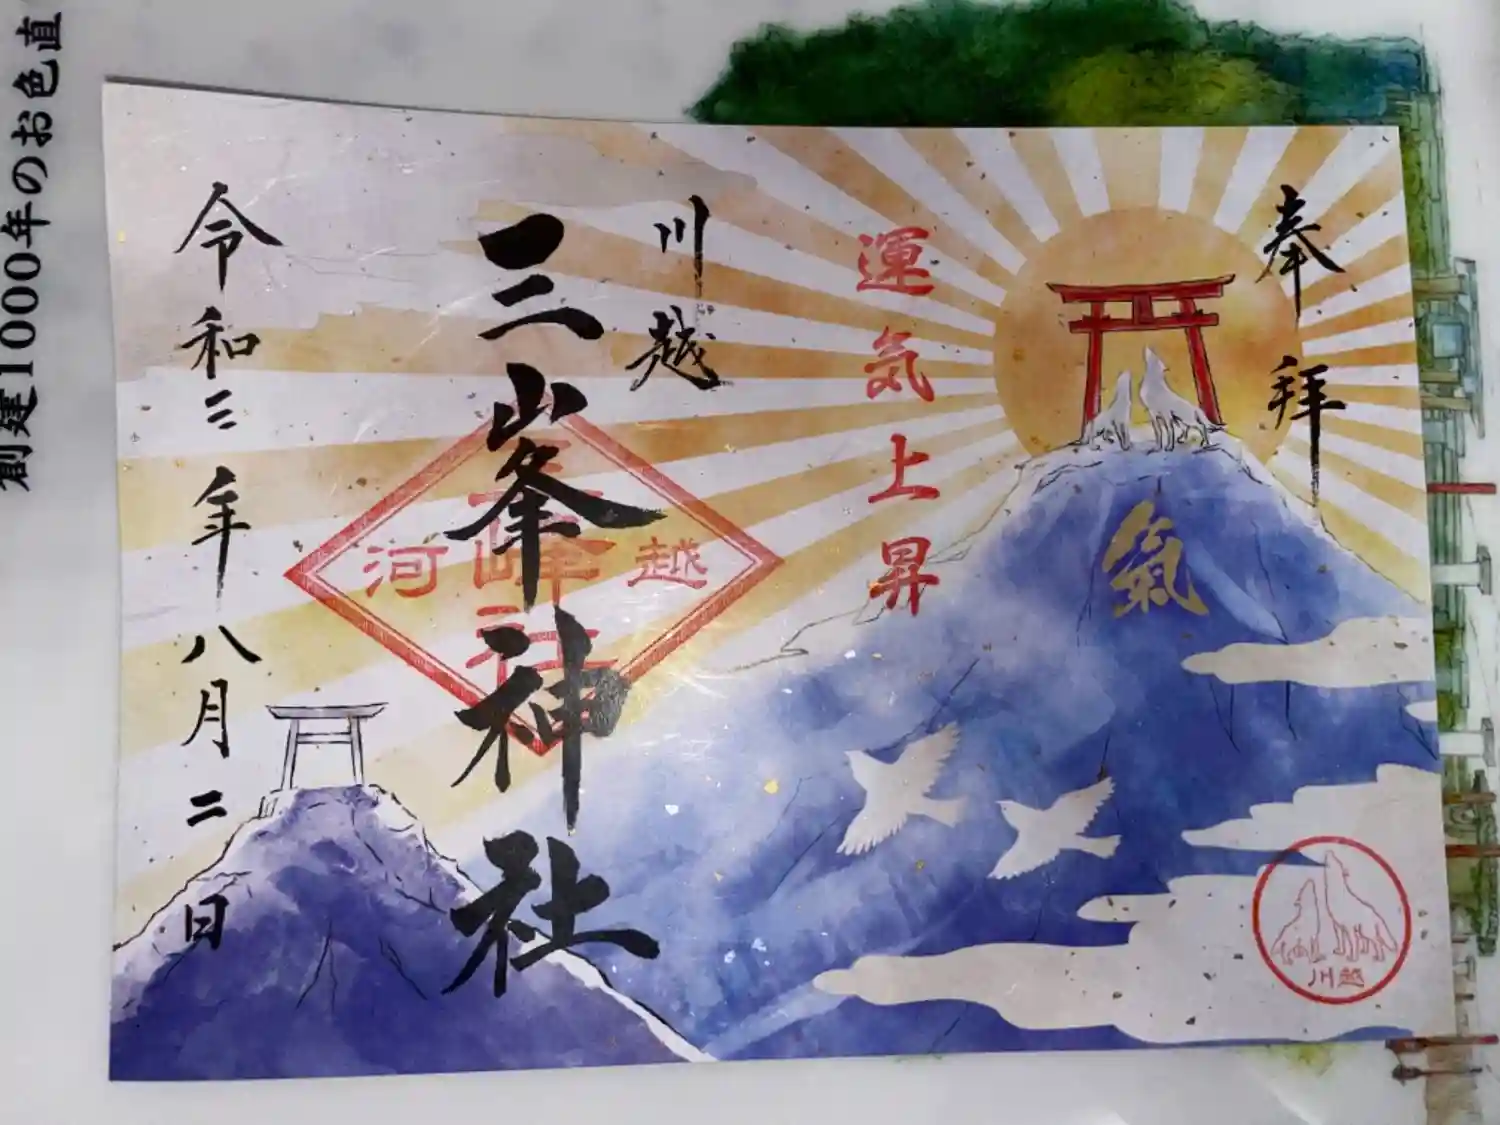 奉拝
氣
運気上昇
川越
三峯神社
河越
令和三年八月二日
川越
創建1000年のお色直